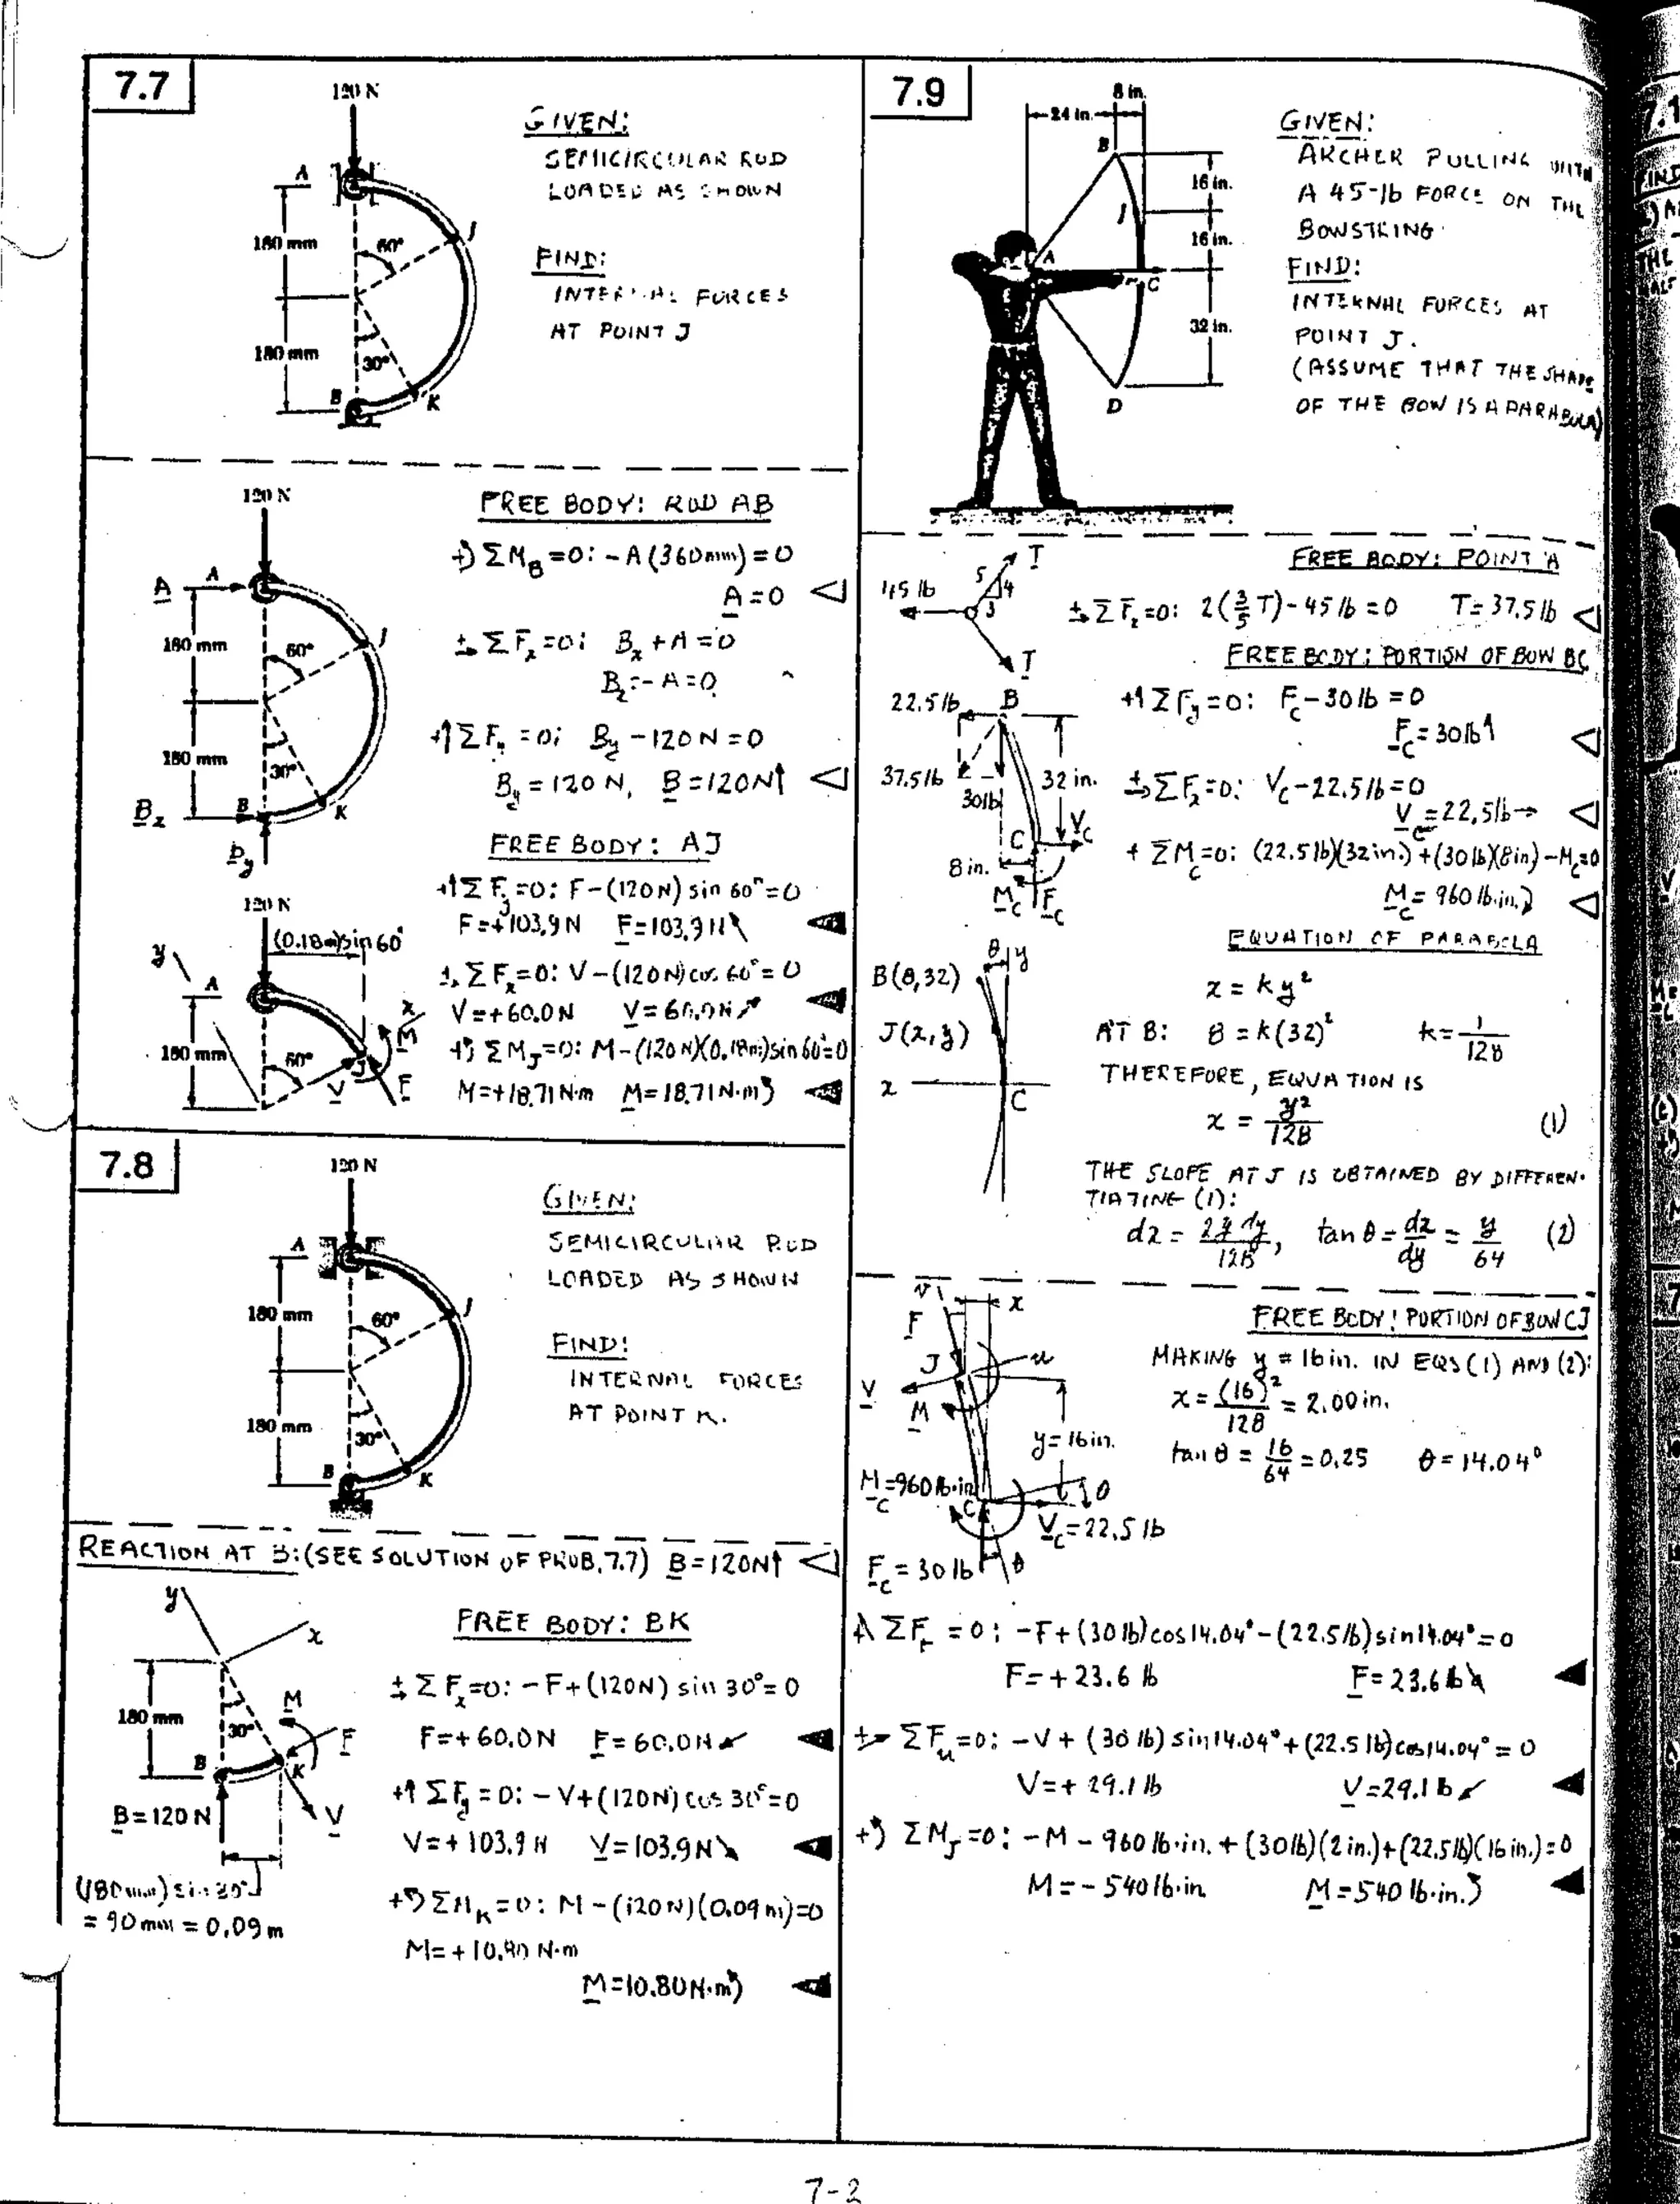 7.7
120 N
A
J
180 mm
60°
180 mm
30°
B
K
GIVEN:
SEMICIRCULAR ROD
LOADED AS SHOWN
FIND:
INTERNAL FORCES
AT POINT J
120 N
A
A
J
180 mm
60°
180 mm
30°
B
K
B_x
B_y
FREE BODY: ROD AB
+) ΣM_B = 0: - A (360 mm) = 0
A = 0
+→ ΣF_x = 0: B_x + A = 0
B_x = - A = 0
+↑ ΣF_y = 0: B_y - 120 N = 0
B_y = 120 N, B = 120 N↑
FREE BODY: AJ
120 N
(0.18m) sin 60°
y
A
x
M
180 mm
60°
J
V
F
+↑ ΣF_y = 0: F - (120 N) sin 60° = 0
F = +103.9 N F = 103.9 N ↖
+→ ΣF_x = 0: V - (120 N) cos 60° = 0
V = +60.0 N V = 60.0 N ↗
+) ΣM_J = 0: M - (120 N)(0.18m) sin 60° = 0
M = +18.71 N·m M = 18.71 N·m )
7.8
120 N
A
J
180 mm
60°
180 mm
30°
B
K
GIVEN:
SEMICIRCULAR ROD
LOADED AS SHOWN
FIND:
INTERNAL FORCES
AT POINT K.
REACTION AT B: (SEE SOLUTION OF PROB. 7.7) B = 120 N↑
y
x
180 mm
30°
M
F
B
K
B = 120 N
V
(180 mm) sin 30°
= 90 mm = 0.09 m
FREE BODY: BK
+→ ΣF_x = 0: - F + (120 N) sin 30° = 0
F = + 60.0 N F = 60.0 N ↙
+↑ ΣF_y = 0: - V + (120 N) cos 30° = 0
V = + 103.9 N V = 103.9 N ↘
+) ΣM_K = 0: M - (120 N)(0.09 m) = 0
M = + 10.80 N·m
M = 10.80 N·m )
7.9
8 in.
24 in.
B
16 in.
J
16 in.
A
C
32 in.
D
GIVEN:
ARCHER PULLING WITH
A 45-lb FORCE ON THE
BOWSTRING.
FIND:
INTERNAL FORCES AT
POINT J.
(ASSUME THAT THE SHAPE
OF THE BOW IS A PARABOLA)
T
5
4
3
45 lb
T
FREE BODY: POINT A
+→ ΣF_x = 0: 2(3/5 T) - 45 lb = 0 T = 37.5 lb
FREE BODY: PORTION OF BOW BC
22.5 lb
B
37.5 lb
30 lb
32 in.
C
V_C
8 in.
M_C
F_C
+↑ ΣF_y = 0: F_C - 30 lb = 0
F_C = 30 lb ↑
+→ ΣF_x = 0: V_C - 22.5 lb = 0
V_C = 22.5 lb →
+ ΣM_C = 0: (22.5 lb)(32 in.) + (30 lb)(8 in) - M_C = 0
M_C = 960 lb·in. )
EQUATION OF PARABOLA
θ
y
B(8,32)
J(x,y)
x
C
x = k y²
AT B: 8 = k(32)² k = 1/128
THEREFORE, EQUATION IS
x = y²/128 (1)
THE SLOPE AT J IS OBTAINED BY DIFFEREN-
TIATING (1):
dx = 2y dy/128, tan θ = dx/dy = y/64 (2)
FREE BODY: PORTION OF BOW CJ
x
F
J
u
V
M
y = 16 in.
M_C = 960 lb·in
C
θ
V_C = 22.5 lb
F_C = 30 lb
θ
MAKING y = 16 in. IN EQS (1) AND (2):
x = (16)²/128 = 2.00 in.
tan θ = 16/64 = 0.25 θ = 14.04°
ΣF = 0: - F + (30 lb) cos 14.04° - (22.5 lb) sin 14.04° = 0
F = + 23.6 lb F = 23.6 lb ↘
+ ΣF_u = 0: - V + (30 lb) sin 14.04° + (22.5 lb) cos 14.04° = 0
V = + 29.1 lb V = 29.1 lb ↙
+) ΣM_J = 0: - M - 960 lb·in. + (30 lb)(2 in.) + (22.5 lb)(16 in.) = 0
M = - 540 lb·in. M = 540 lb·in. )
7-2